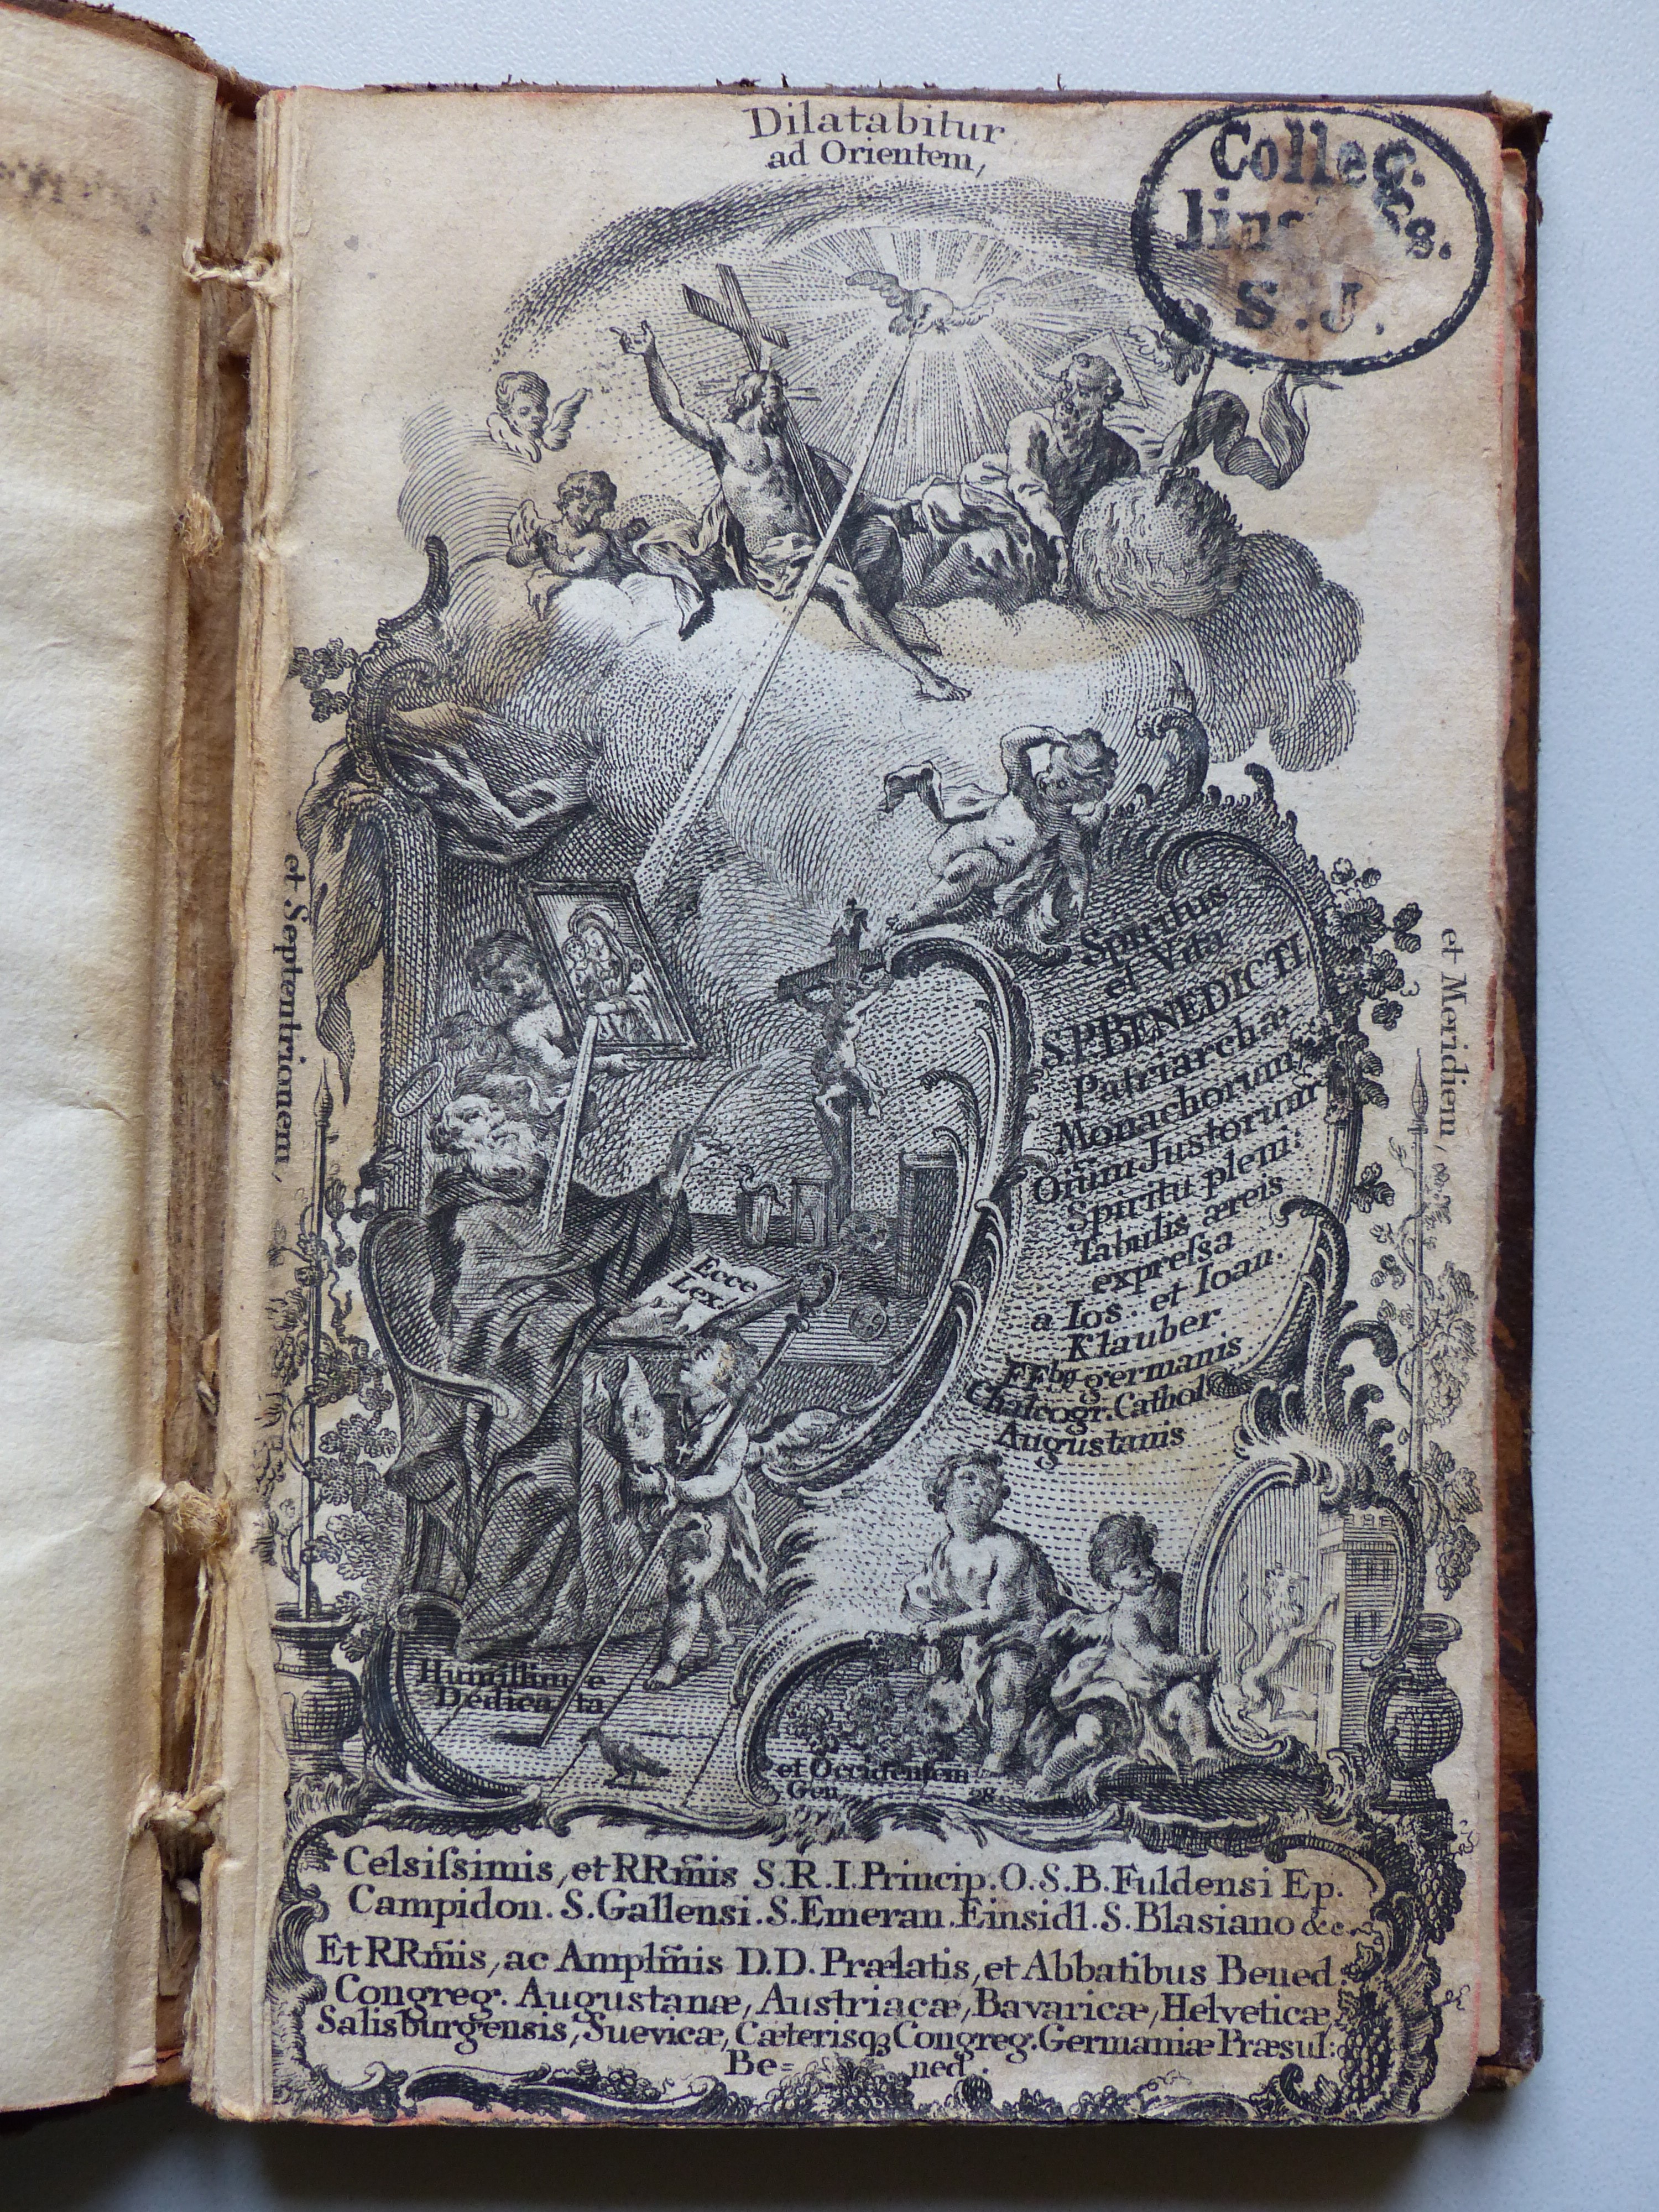 Dilatabitur
ad Orientem,
Colleg.
S.J.
et Septentrionem,
et Meridiem,
Spiritus
et Vita
S.P. BENEDICTI
Patriarchæ
Monachorum,
Oiūm Justorum
Spiritu pleni:
Tabulis æreis
expreſsa
a Ios. et Ioan.
Klauber
FF.bꝰ germanis
Chalcogr. Cathol.
Augustanis
Ecce
Lex.
Humillime
Dedicata
et Occidentem
Gen. 28.
Celsiſsimis, et RRm̃is S.R.I. Princip. O.S.B. Fuldensi Ep.
Campidon. S. Gallensi. S. Emeran. Einsidl. S. Blasiano &c.
Et RRm̃is, ac Amplm̃is D.D. Prælatis, et Abbatibus Bened.
Congreg. Augustanæ, Austriacæ, Bavaricæ, Helveticæ,
Salisburgensis, Suevicæ, Cæterisqꝫ Congreg. Germaniæ Præsul:
Be= ned.